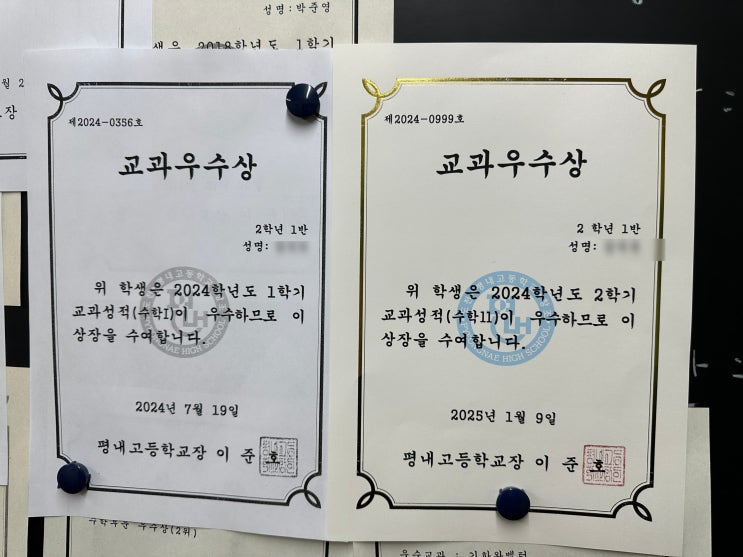 성명:박준영
생은 2018학년도 1학기
제2024-0356호
교과우수상
2학년 1반
성명:
위 학생은 2024학년도 1학기
교과성적(수학I)이 우수하므로 이
상장을 수여합니다.
PYUNGNAE HIGH SCHOOL
2024년 7월 19일
평내고등학교장 이 준 호
제2024-0999호
교과우수상
2 학년 1반
성명:
위 학생은 2024학년도 2학기
교과성적(수학11)이 우수하므로 이
상장을 수여합니다.
HIGH SCHOOL
2025년 1월 9일
평내고등학교장 이 준 호
수학부문 우수상(2위)
우수교과 : 기하와벡터